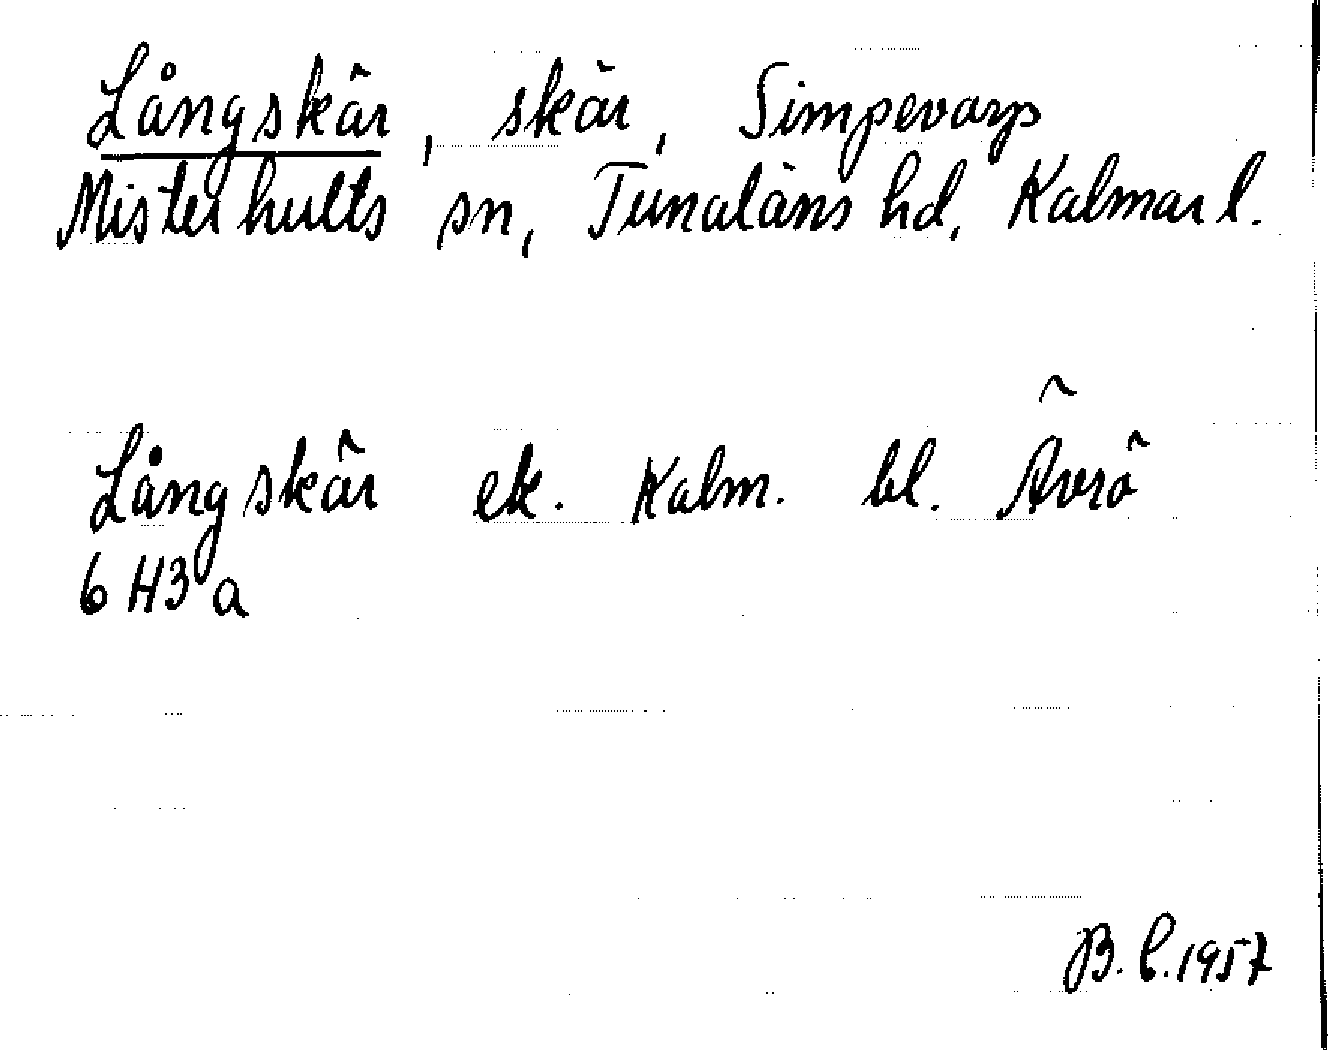 Långskär, skär, Simpevarp
Misterhults sn, Tunaläns hd, Kalmar l.
Långskär ek. Kalm. bl. Ävrö
6 H3 a
B. l. 1957